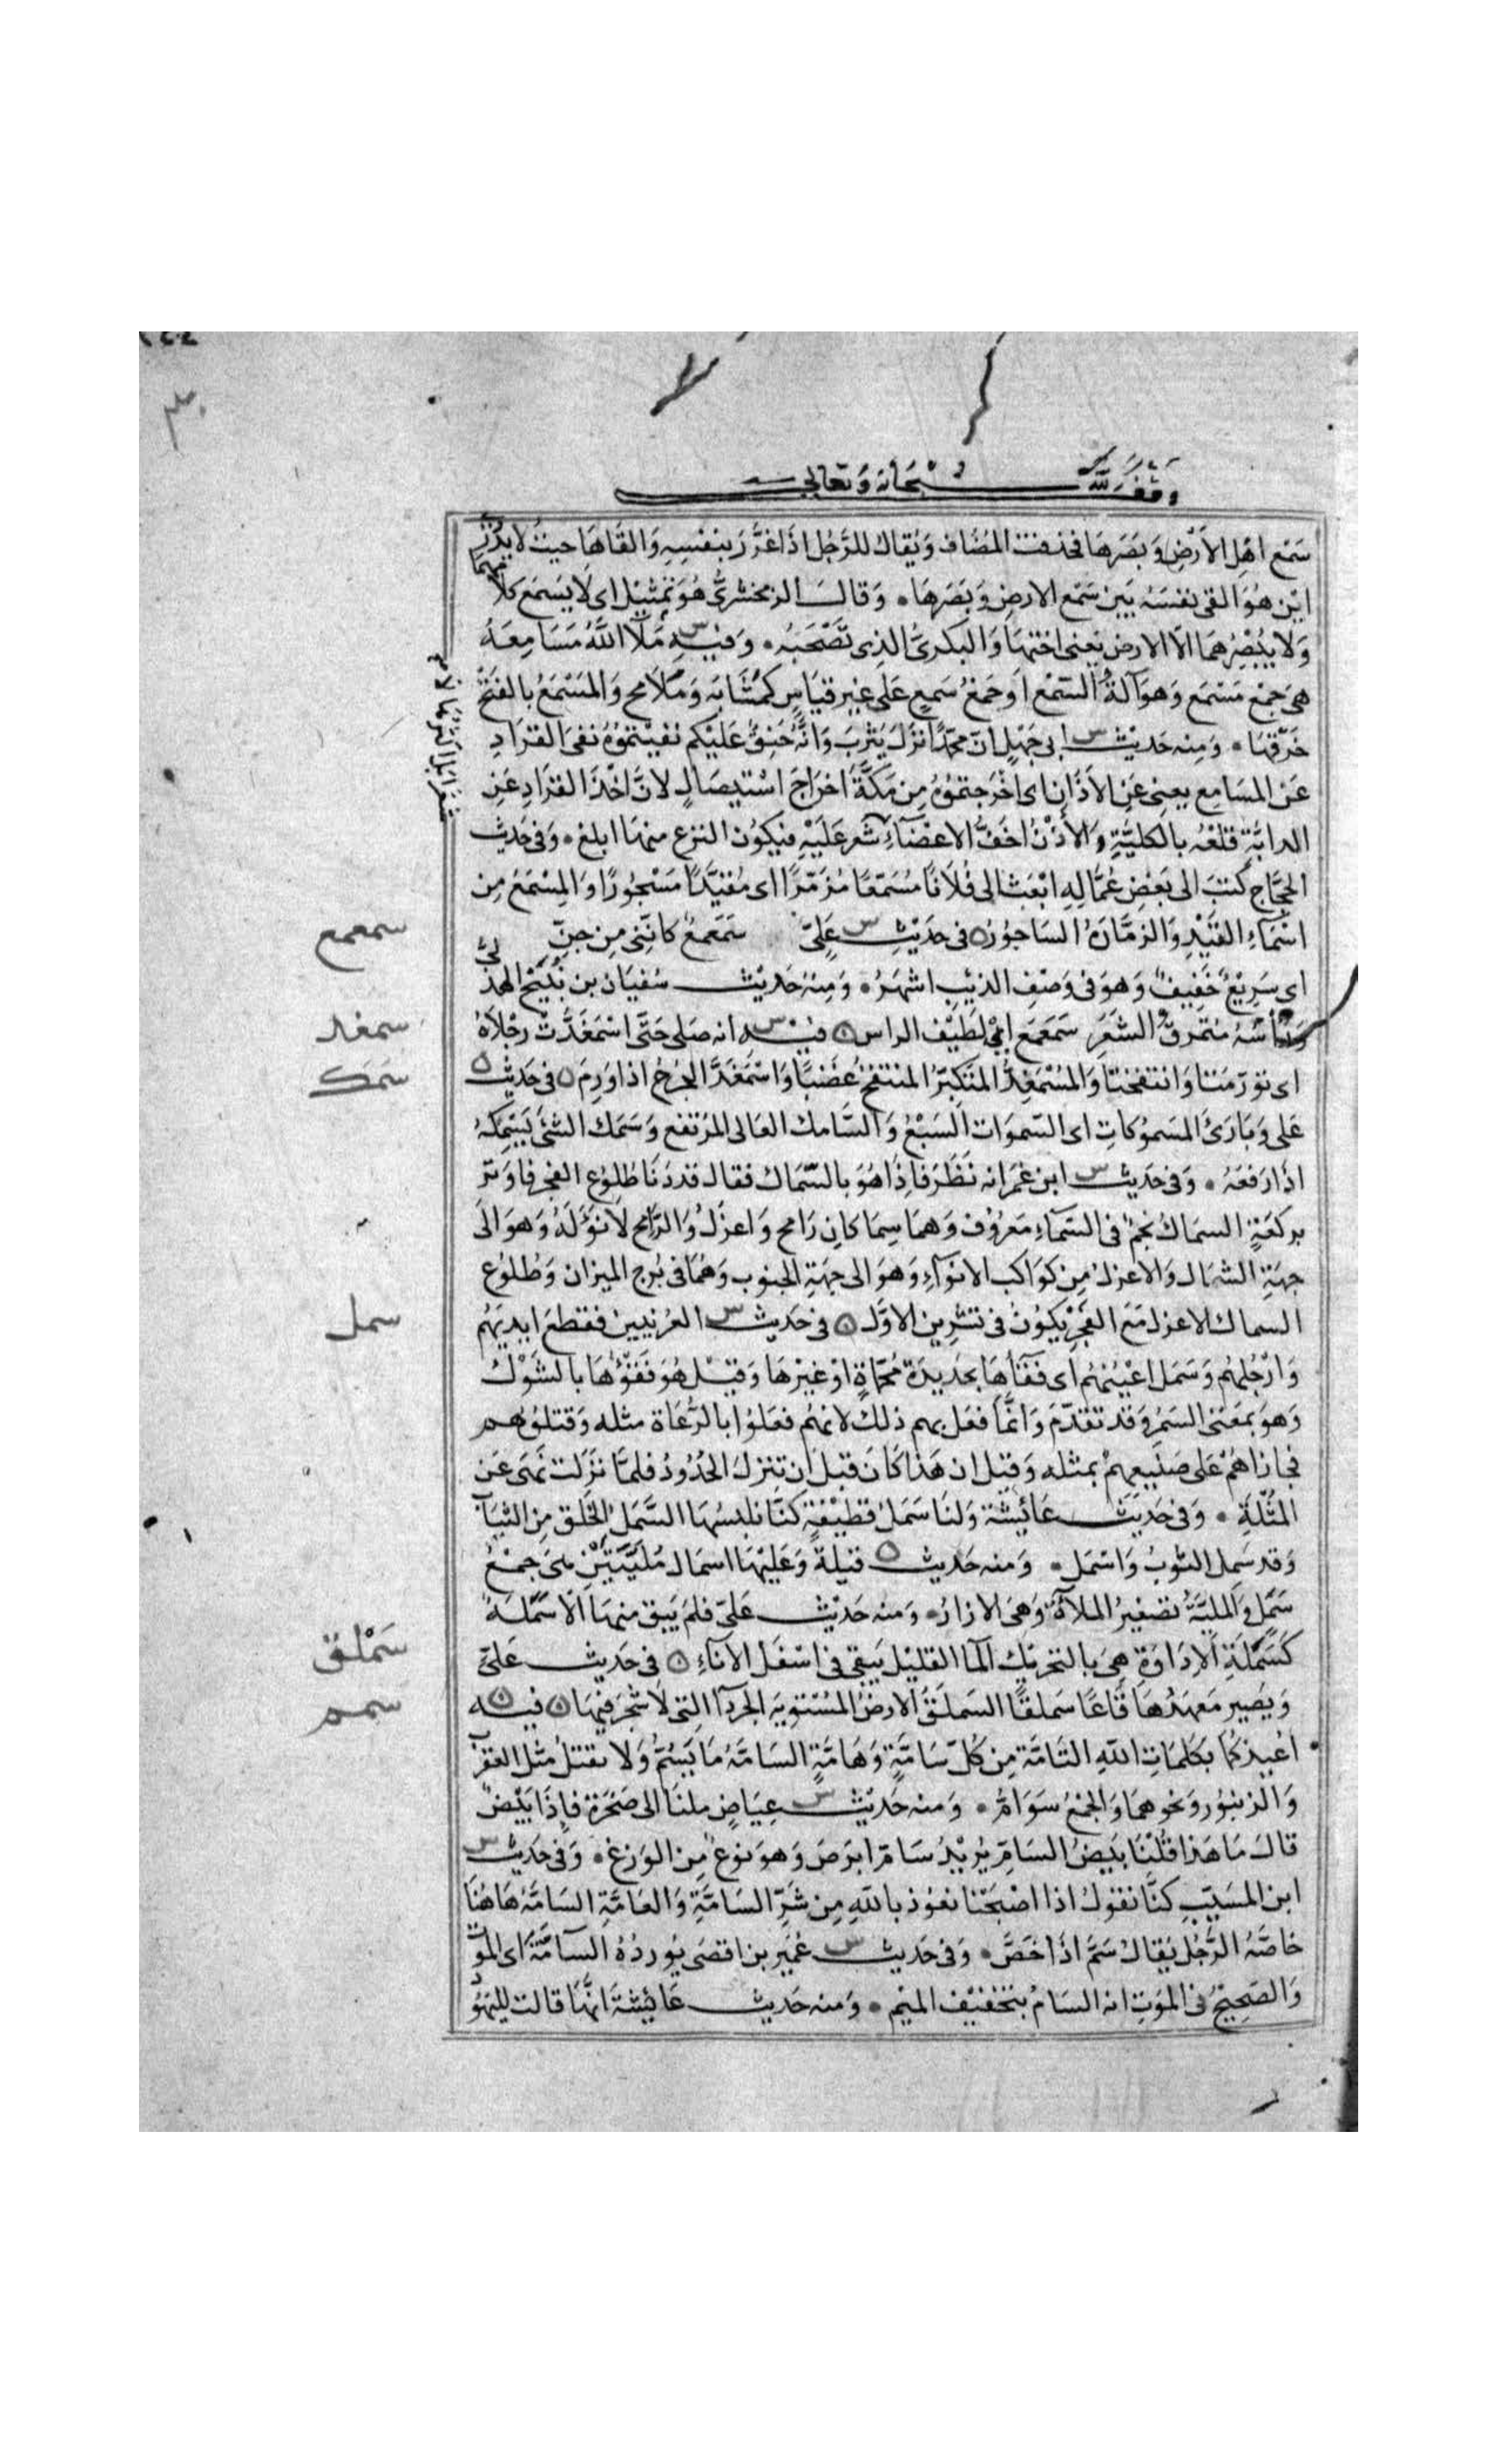 وقف لله سبحانه وتعالى
سَمْع اهْلِ الأرْضِ وَبَصَرهَا فحذفت المُضاف وَيُقال للرَّجُل اذَا غرَّر بنفسِهِ وَالقَاهَا حيث لا يدْرى
ايْن هُوَ القى نفسَهُ بَين سَمْع الارض وَبَصَرهَا ۰ وَقال الزمخشرىُّ هُوَ تمثيْل اى لا يَسمَع كلا مهما
وَلا يُبْصِرُهمَا الّا الارض يَعنى اختهَا وَالبكرىّ الذى تَصْحَبُه ۰ وَفيه س مَلأ اللَّهُ مَسَامِعَهُ
هىَ جَمْع مَسْمَع وَهوَ آلةُ السّمْع اَو جَمْعُ سَمع عَلى غيْر قيَاسٍ كمَشَابَه وَمَلَامح وَالمَسْمَعُ بالفتحْ
خَرْقهَا ۰ وَمنه حَديث س ابى جَهْلٍ انّ محمّدًا نزل يَثْربَ وَانَّهُ حَنِقٌ عَليْكم نفيْتموُهُ نفىَ القرَادِ
عَن المسَامِع يعنى عَن الآذَان اى اخْرَجتموُهُ من مَكّةَ اخرَاجَ اسْتيصَالٍ لانّ اخْذَ القرَادِ عَن
الدابّةِ قلعُه بالكلّيَّةِ وَالأذُنُ اخَفُّ الاعْضَآءِ شَعر عَلَيْهِ فيَكوُن النزع منهَا ابلغ ۰ وَفى حَديث
الحجَّاج كتَبَ الى بَعْض عُمَّالِهِ ابْعَث الى فُلانًا مُسَمّعًا مُزَمّرًا اى مُقيَّدًا مَسْجُورًا وَالمِسْمَعُ مِن
اسْمَاءِ القَيْدِ وَالزمَّارَةُ السَاجوُر ۰ فى حَديث س عَلىّ سَمَعمَعٌ كاننى مِن جنّ
اى سَريْعٌ خَفيفٌ وَهوَ فى وَصْف الذيب اشهَرُ ۰ وَمِنهُ حَديث سُفيَان بن نُبَيْح الهذلىّ
وَرَأسُهُ متمرقّ الشَعَر سَمَعمَع اى لطيْف الراس ۰ فيه س انه صَلى حَتّى اسْمَغَدَّتْ رجْلاهُ
اى توَرّمَتا وَانتفخَتا وَالمُسْمَغِدُّ المتَكبّرُ المنتفخُ غضَبًا وَاسْمَغَدَّ الجُرْحُ اذا وَرِمَ ۰ فى حَديث ه
عَلى وَبَارئَ المَسموُكَاتِ اى السّموَات السَبْعُ وَالسَّامك العَالى المرتفع وَسَمَك الشئ يَسْمكهُ
اذَا رَفعَهُ ۰ وَفى حَديث س ابن عُمَر انه نَظَرَ فاذا هُوَ بالسّمَاك فقال قد دَنَا طلوُع الفجر فاَوتر
بركعَةٍ السمَاكُ نجْم فى السّمَآءِ مَعرُوف وَهمَا سِمَاكان رَامح وَاعزَل وَالرَّامح لا نَوْءَ لَهُ وَهوَ الىَ
جهَةِ الشمَال وَالاعزَل مِن كوَاكب الانوَآءِ وَهوَ الى جهَةِ الجنوب وَهمَا فى بُرج الميزان وَطُلوُع
السماك الاعزل مَعَ الفَجْرِ يَكوُنُ فى تشرين الاوَّل ۰ فى حَديث س العُرنيين فقطع ايديَهُم
وَارْجُلهُم وَسَمَل اعْيُنهُم اى فقأهَا بحَديدَة مُحْمَاةٍ اوْ غيْرهَا وَقيْل هُوَ فَقؤُهَا بالشَوْك
وَهوَ بمَعنى السَمْر وَقد تقدّمَ وَانّمَا فعَل بهم ذلك لانهُم فعَلوُا بالرُّعَاة مثله وَقتلوُهم
فجازاهُمْ عَلى صَنيعهمْ بمثله وَقيل ان هَذا كان قبل ان تنزل الحُدُودُ فلمّا نزَلت نَهىَ عَن
المُثْلَةِ ۰ وَفى حَديث عَائيشة وَلنَا سَمَل قطيْفةٍ كنّا نلبسُهَا السَّمَل الخَلَق مِن الثيَاب
وَقد سَمل الثوبُ وَاسْمَل ۰ وَمنه حَديث ه قيلة وَعَليْهَا اسمَال مُلَيَّتَيْن هىَ جَمْعُ
سَمَلٍ وَالمليَّةُ تصْغيْرُ الملآءة وَهىَ الازارُ ۰ وَمنه حَديث عَلىّ فلم يَبق منهَا الّا سَمَلةٌ
كَسَمَلَةِ الادَاوَةِ هِىَ بالتحريْك المآ القليْل يَبقى فى اسْفَل الانآءِ ۰ فى حَديث عَلىّ
وَيَصير مَعهَدُهَا قَاعًا سَملقًا السَملَقُ الارضُ المُسْتويَه الجردآ التى لا شجَر فيهَا ۰ فيه
اعُيذكما بكلمَاتِ اللهِ التَّامَّة مِن كُلّ سَامّةٍ وَهَامَّةٍ السَامّةُ مَا يَسُمُّ وَلا يقتلُ مثل العقرب
وَالزنبوُر وَنحوهمَا وَالجَمْعُ سَوَامُّ ۰ وَمنه حَديث س عِيَاضٍ ملنَا الى صَخرَة فاذا بَيْضٌ
قال مَا هَذا قُلْنَا بَيضُ السَامّ يُريْدُ سَامّ ابرَصَ وَهوَ نوعٌ مِن الوَزغ ۰ وَفى حَديث س
ابن المسَيّب كنَّا نقوُل اذا اصْبَحْنا نعوُذ باللهِ مِن شَرّ السَامَّةِ وَالعَامَّةِ السَامَّةُ هَاهُنَا
خاصَّةُ الرَّجُل يُقال سَمَّ اذَا خَصَّ ۰ وَفى حَديث س عُمَير بن افصَى يوُردُهُ السآمَّةَ اى الموْتَ
وَالصَحيْحُ فى المَوتِ انه السَامُ بتخفيْف الميْم ۰ وَمنه حَديث عَائيشة انّهَا قالت لليَهوُد
سمعمع
سمغد
سمك
سمل
سَمْلق
سمم